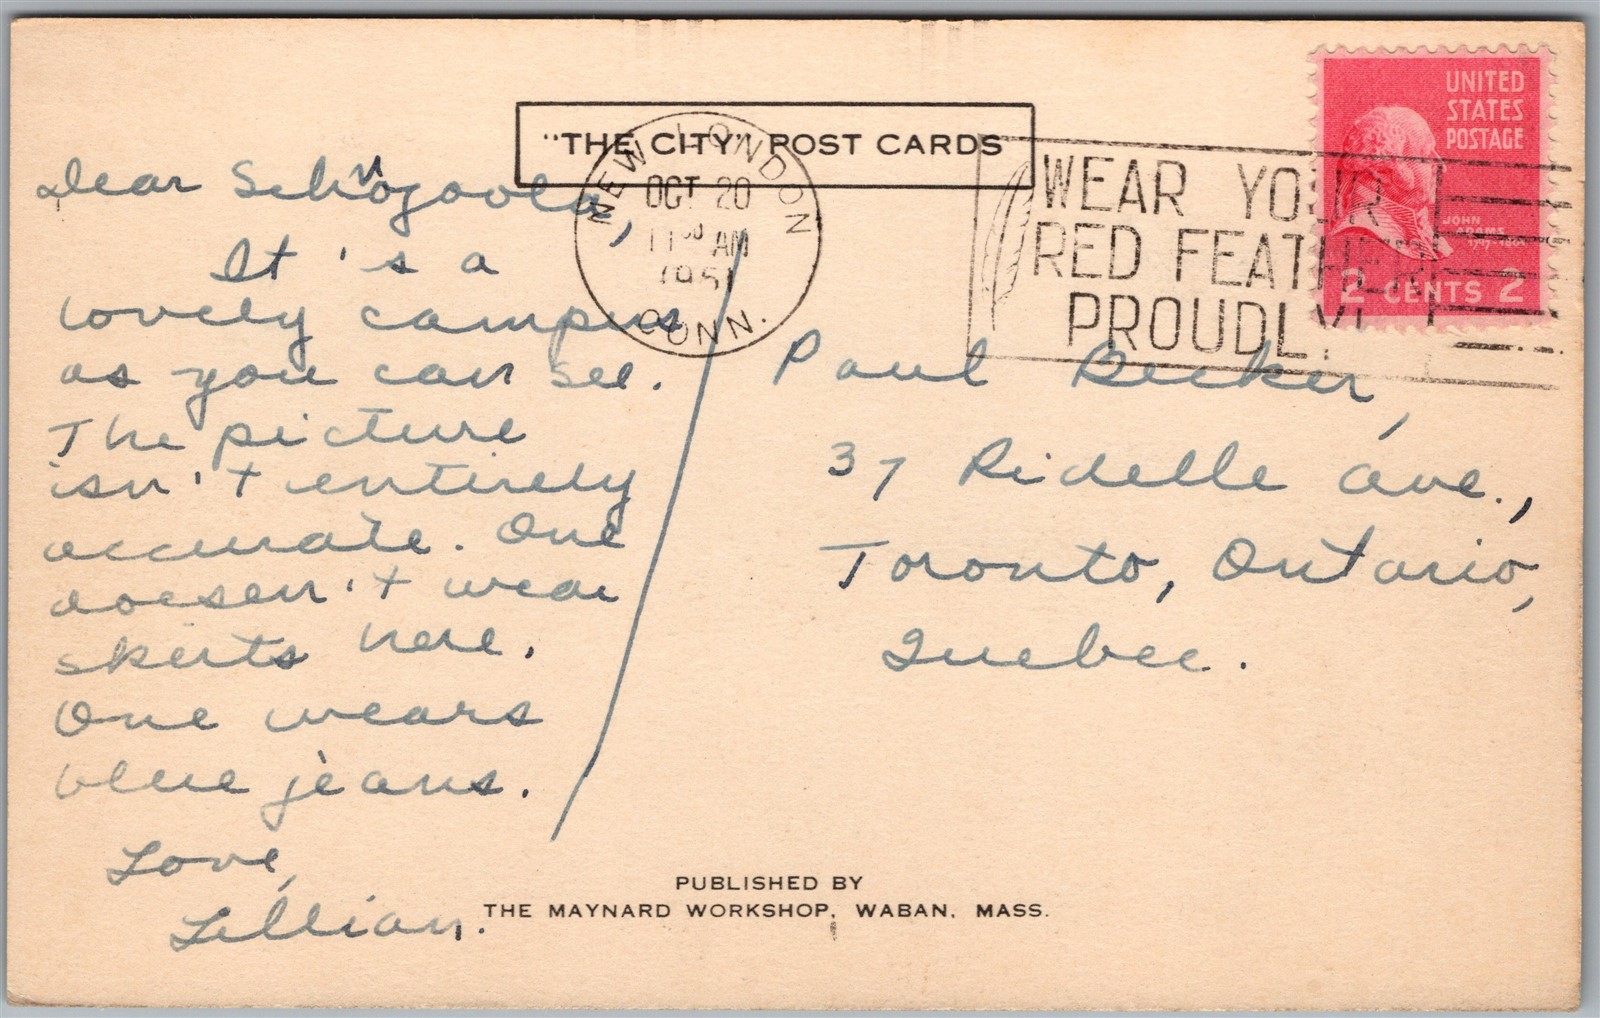 "THE CITY" POST CARDS
NEW LONDON
OCT 20
11 30 AM
1951
CONN.
WEAR YOUR
RED FEATHER
PROUDLY!
UNITED
STATES
POSTAGE
JOHN
ADAMS
1797-1801
2 CENTS 2
Dear
It's a
lovely campus
as you can see.
The picture
isn't entirely
accurate. One
doesen't wear
skirts here.
One wears
blue jeans.
Love,
Lillian.
Paul Becker,
37 Ridelle Ave.,
Toronto, Ontario,
Quebec.
PUBLISHED BY
THE MAYNARD WORKSHOP, WABAN, MASS.